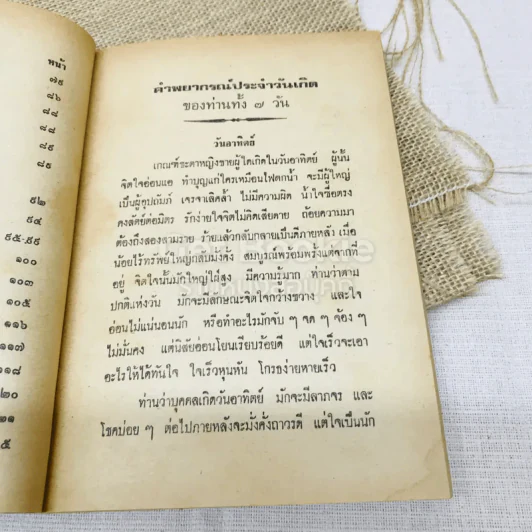 หน้า
๗๕
๘๖
๘๘
๘๘
๘๙
๙๒
๙๔
๙๕-๙๙
๑๐๐
๑๐๓
๑๐๕
๑๑๖
๑๑๗
๑๑๘
๒๐
๑๑
๕
คำพยากรณ์ประจำวันเกิด
ของท่านทั้ง ๗ วัน
วันอาทิตย์
เกณฑ์ชะตาหญิงชายผู้ใดเกิดในวันอาทิตย์ ผู้นั้น
จิตใจอ่อนแอ ทำบุญแก่ใครเหมือนไฟตกน้ำ จะมีผู้ใหญ่
เป็นผู้อุปถัมภ์ เจรจาเลิศล้ำ ไม่มีความผิด น้ำใจซื่อตรง
คงสัตย์ต่อมิตร รักง่ายใจจิตไม่คิดเสียดาย ถ้อยความมา
ต้องถึงสองสามราย ร้ายแล้วกลับกลายเป็นดีภายหลัง เมื่อ
น้อยไร้ทรัพย์ใหญ่กลับมั่งคั่ง สมบูรณ์พร้อมพรั่งแต่จากที่
อยู่ จิตใจนั้นมักใหญ่ใฝ่สูง มีความรู้มาก ท่านว่าตาม
ปกติแห่งวัน มักจะมีลักษณะจิตใจกว้างขวาง และใจ
อ่อนไม่แน่นอนนัก หรือทำอะไรมักจับ ๆ จด ๆ จ้อง ๆ
ไม่มั่นคง แต่นิสัยอ่อนโยนเรียบร้อยดี แต่ใจเร็วจะเอา
อะไรให้ได้ทันใจ ใจเร็วหุนหัน โกรธง่ายหายเร็ว
ท่านว่าบุคคลเกิดวันอาทิตย์ มักจะมีลาภจร และ
โชคบ่อย ๆ ต่อไปภายหลังจะมั่งคั่งถาวรดี แต่ใจเป็นนัก